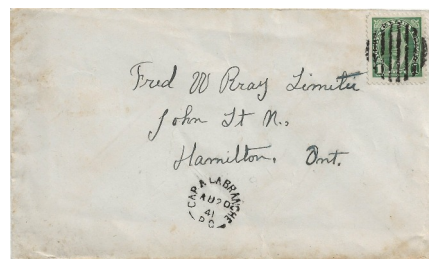 Fred W Bray Limited
John St N.,
Hamilton, Ont.
CAP A LABRANCHE
AU 20
41
P Q
1